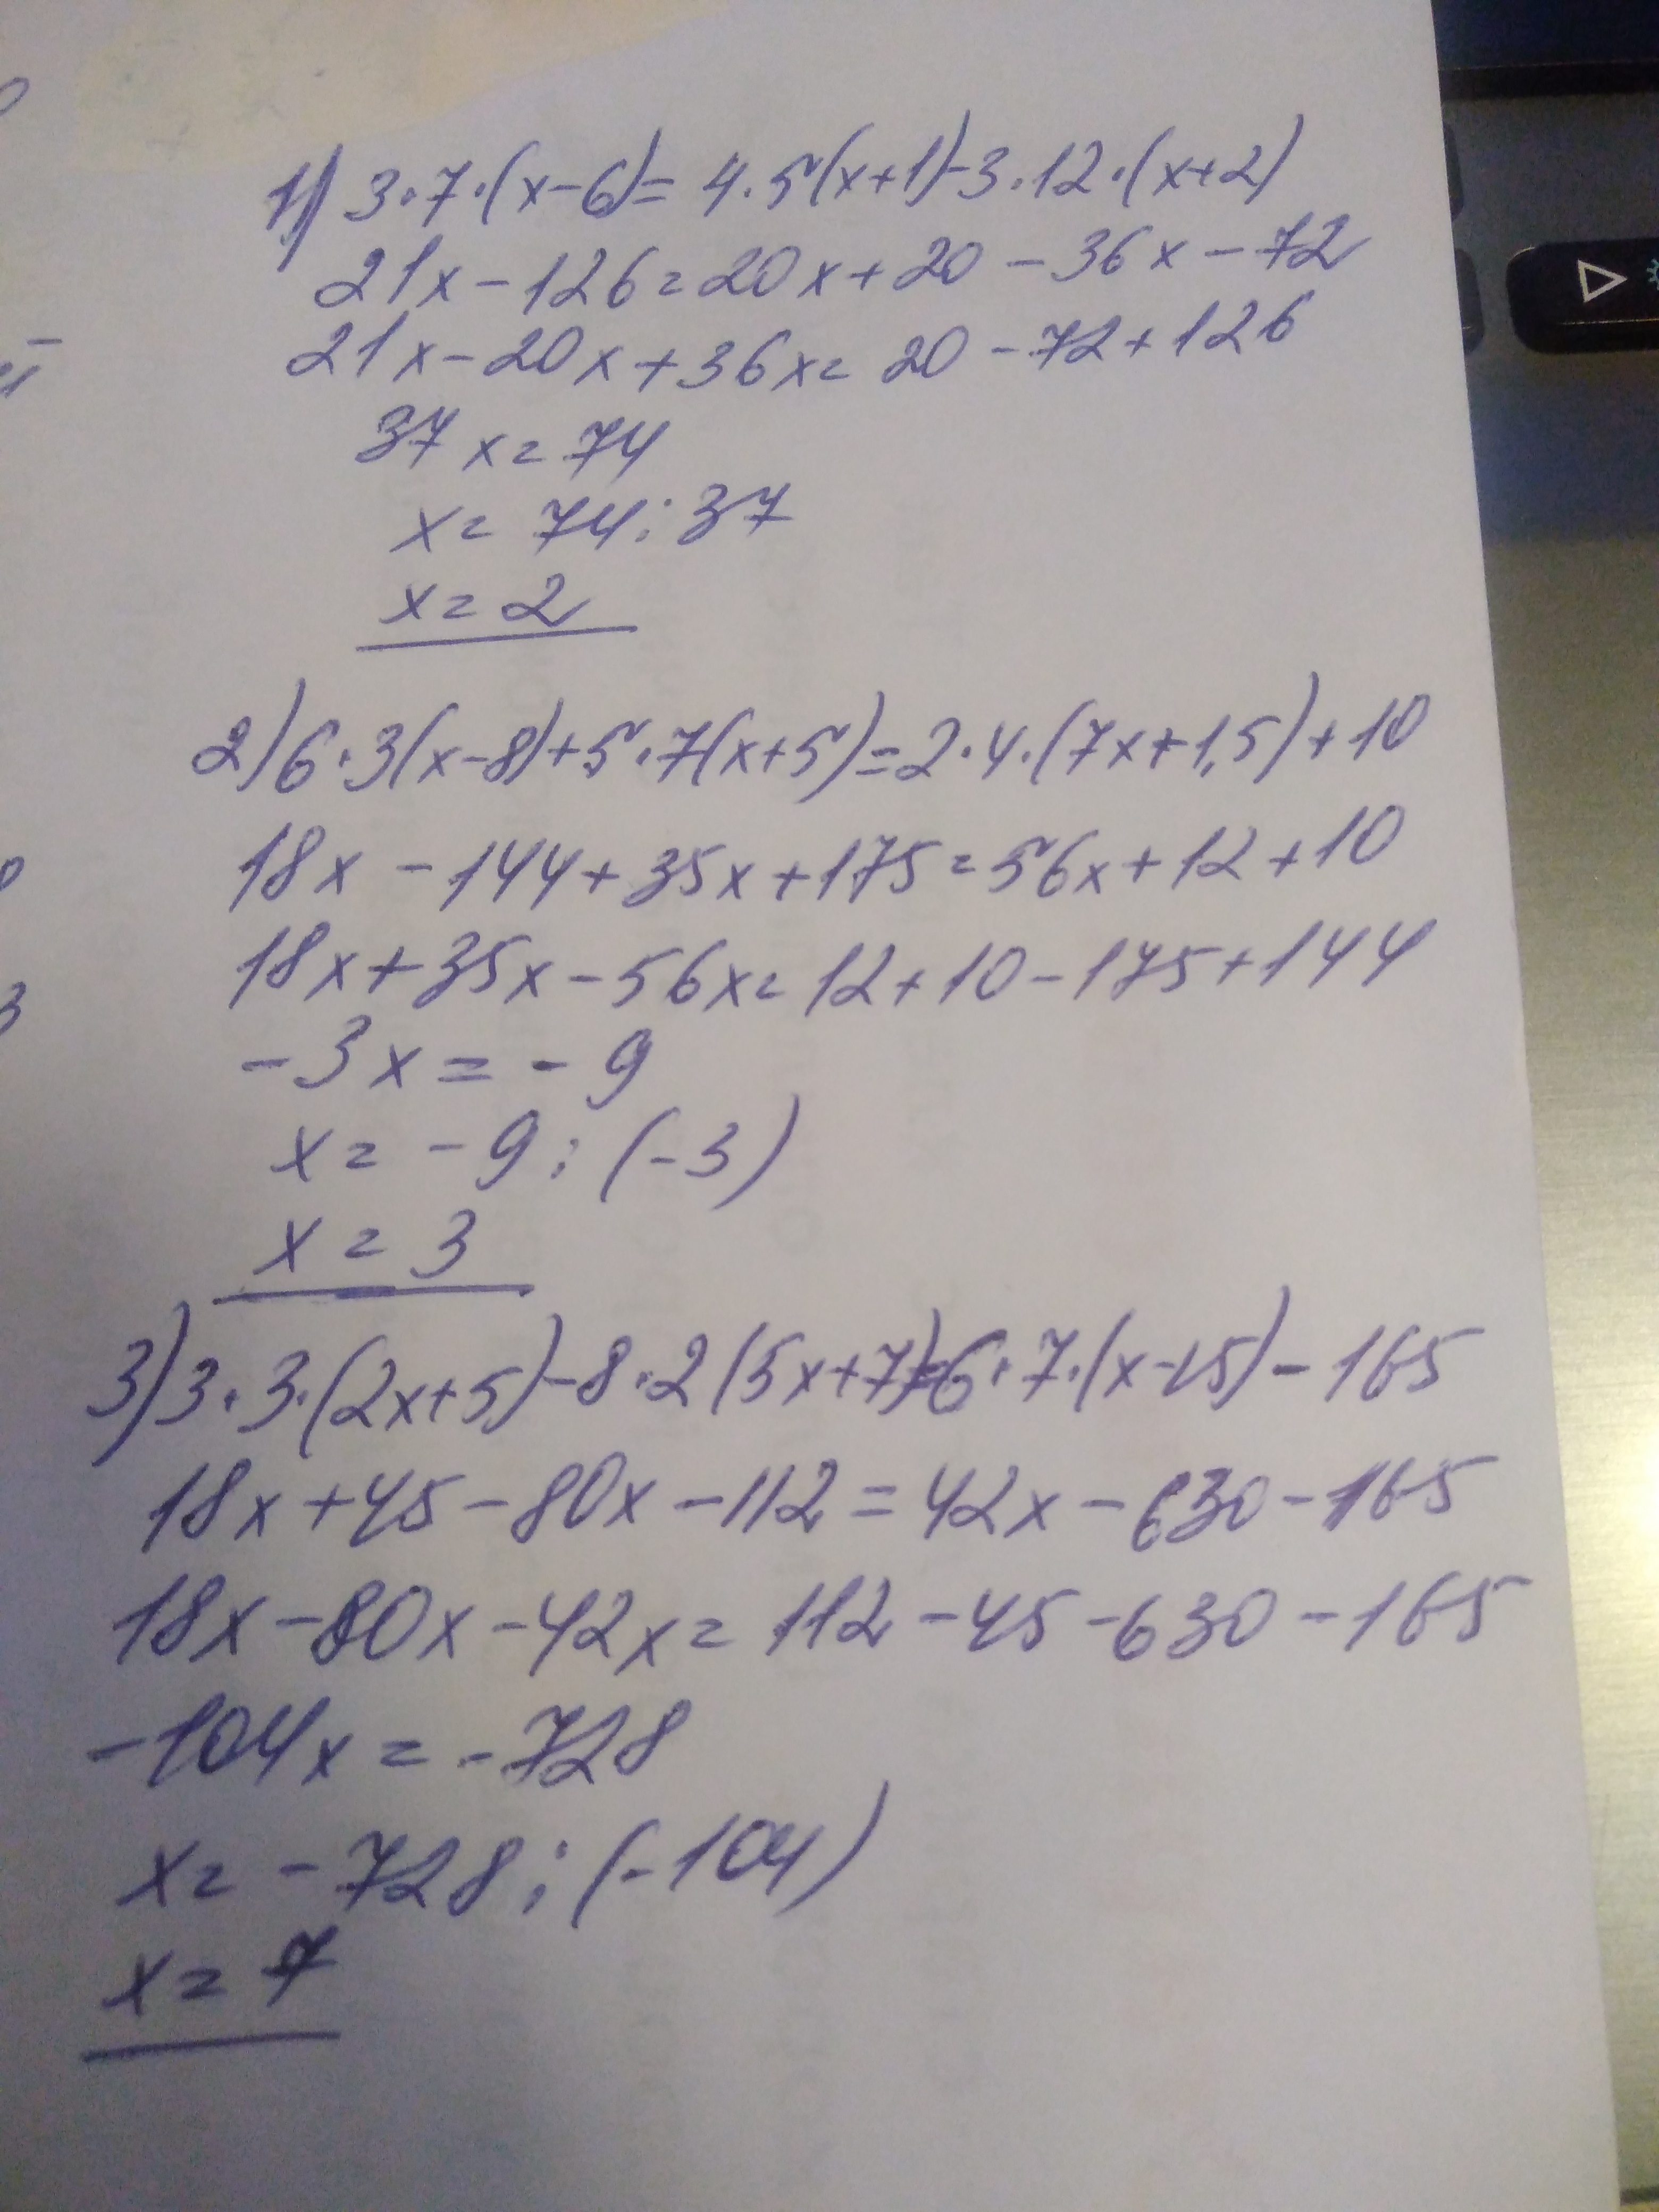 1) 3·7·(x-6)= 4·5(x+1)-3·12·(x+2)
21x-126=20x+20-36x-72
21x-20x+36x=20-72+126
37x=74
x=74:37
x=2
2) 6·3(x-8)+5·7(x+5)=2·4·(7x+1,5)+10
18x-144+35x+175=56x+12+10
18x+35x-56x=12+10-175+144
-3x=-9
x=-9:(-3)
x=3
3) 3·3·(2x+5)-8·2(5x+7)=6·7·(x-15)-165
18x+45-80x-112=42x-630-165
18x-80x-42x=112-45-630-165
-104x=-728
x=-728:(-104)
x=7